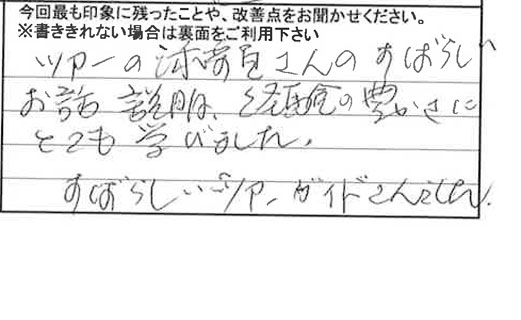 今回最も印象に残ったことや、改善点をお聞かせください。
※書ききれない場合は裏面をご利用下さい
ツアーの添乗員さんのすばらしい
お話 説明、経験の豊かさに
とても学びました。
すばらしいツアーガイドさんでした。